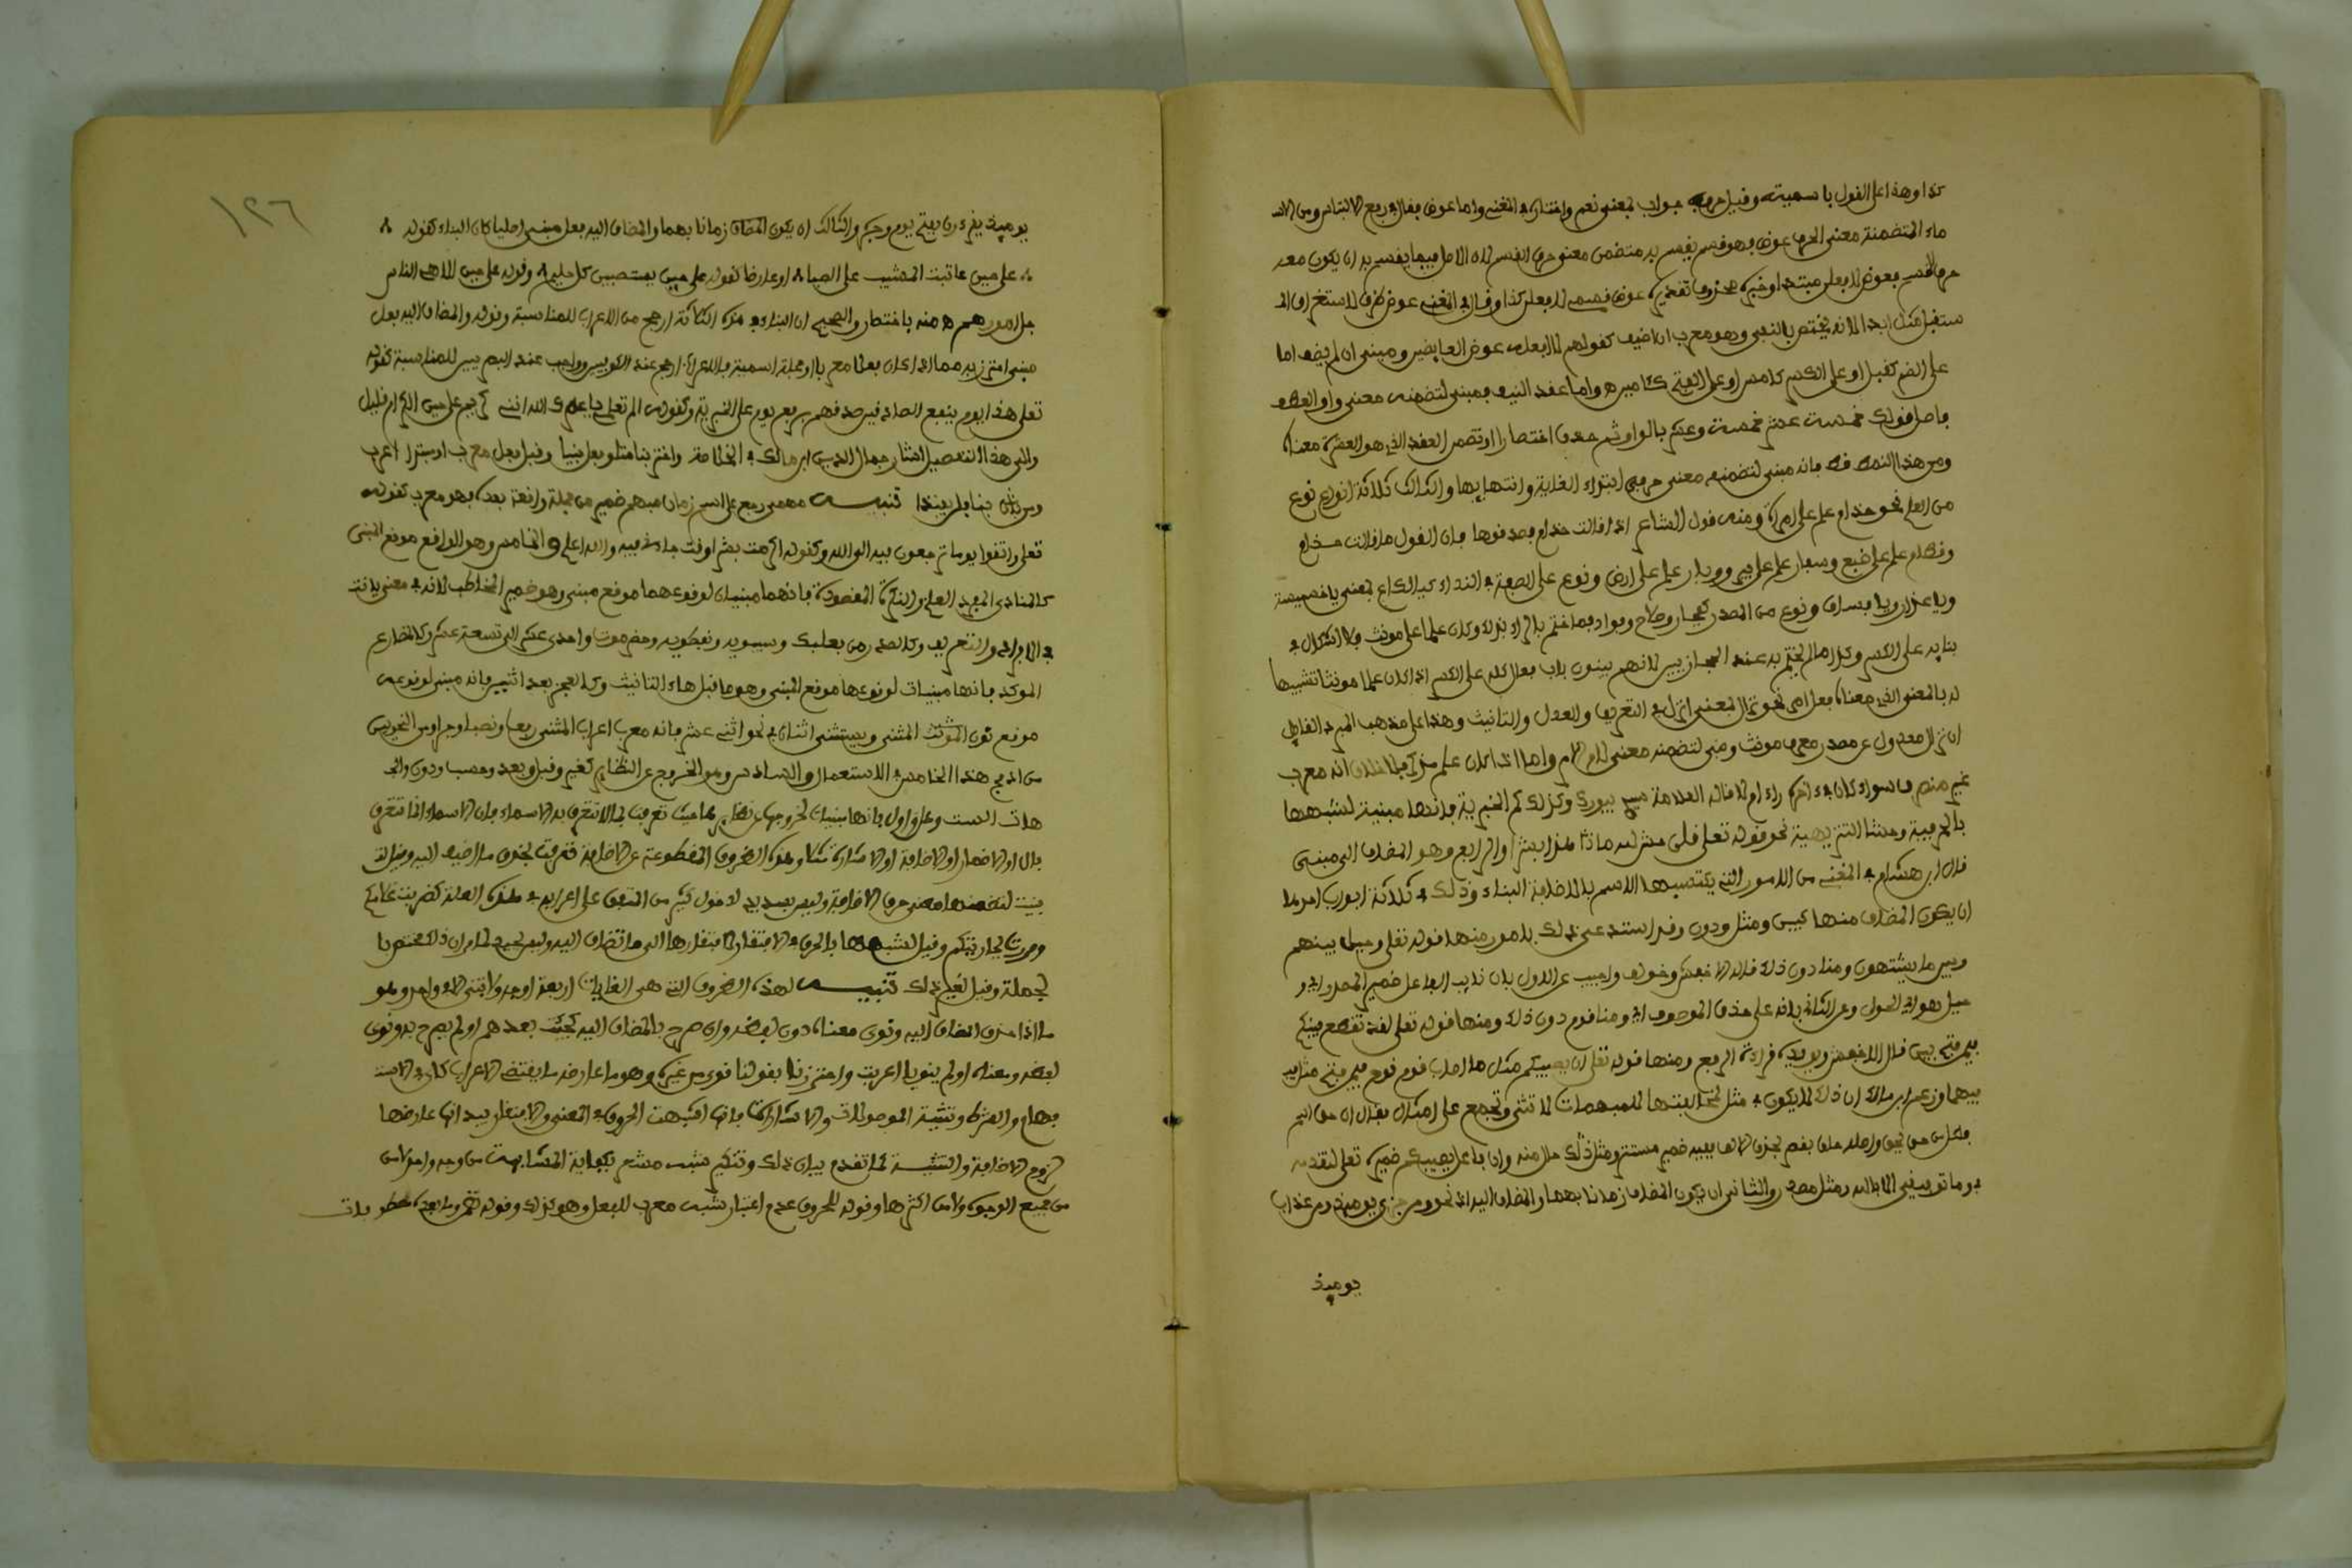 كذا وهذا على القول باسميته وقيل حرف جواب بمعنى نعم واختاره في المغني واما عوض فقال في ربيع الابتداء ومن الاسـ
ماء المتضمنة معنى الحرف عوض فهو قسم يقسم به متضمن معنى حرف القسم لان الاصل فيما يقسم به ان يكون معه
حرف القسم فعوض لا فعلن مبتدا وخبره محذوف تقديره عوض قسمي لا فعلن كذا وقال في المغني عوض ظرف لاستغراق المـ
ستقبل مثل ابدا الا انه يختص بالنفي وهو معرب ان اضيف كقولهم لا افعله عوض العايضين ومبني ان لم يضف اما
على الضم كقبل او على الكسر كامس او على الفتح كاين واما عقد النيف فمبني لتضمنه معنى واو العطف
فاصل قولك خمسة عشر خمسة وعشر بالواو ثم حذف اختصارا وتضمن العقد الذي هو العشرة معناه
ومن هذا النمط قط فانه مبني لتضمنه معنى حرفي ابتداء الغاية وانتهايها والثالث ثلاثة انواع نوع
من العلم نحو حذام علم على امراة ومنه قول الشاعر اذا قالت حذام فصدقوها فان القول ما قالت حذام
وقطام علم على ضبع وسفار علم على بير ووبار علم على ارض ونوع على الصفة في النداء كيا لكاع بمعنى يا خبيثة
ويا غدار ويا فساق ونوع من المصدر كفجار وحماد وبداد فما ختم بالراء بناؤه وكان علما على مونث فلا اشكال في
بنايه على الكسر وكذا ما لم يختم به عند الحجازيين لانهم يبنون باب فعال كله على الكسر اذا كان علما مونثا تشبيها
له بالمعنى الذي معناه فعل امر نحو نزال بمعنى انزل في التعريف والعدل والتانيث وهذا على مذهب المبرد القايل
ان نزال معدول عن مصدر معرف مونث ومبني لتضمنه معنى لام الامر واما اذا كان علم مذكر فلا خلاف انه معرب
غير منصرف سواء كان في اخره راء ام لا قاله العلامة وكذلك كم الخبرية فانها مبنية لشبهها
بالحرفية وحشا التنزيهية نحو قوله تعلى قلن حش لله ما هذا بشرا والرابع وهو المضاف الى مبني
قال ابن هشام في المغني من الامور التي يكتسبها الاسم بالاضافة البناء وذلك في ثلاثة ابواب احدها
ان يكون المضاف منها كغير ومثل ودون وقد استدل على ذلك بامور منها قوله تعلى وحيل بينهم
وبين ما يشتهون ومنا دون ذلك قاله الاخفش وخولف واجيب عن الاول بان نايب الفاعل ضمير المصدر اي و
حيل هو اي الحول وعن الثاني بانه على حذف الموصوف اي ومنا قوم دون ذلك ومنها قوله تعلى لقد تقطع بينكم
فيمن فتح بين قال الاخفش ويؤيده قراءة الرفع ومنها قوله تعلى ان يصيبكم مثل ما اصاب قوم نوح فيمن فتح مثل
فيهما وزعم ابن مالك ان ذلك لا يكون في مثل لمخالفتها للمبهمات لانها تثنى وتجمع على امثال فقال ان حق اسم
فاعل من حق واصله حاق فقصر بحذف الالف ففيه ضمير مستتر ومثل ذلك حال منه وان فاعل يصيبكم ضميره تعلى لتقدمه
في وما توفيقي الا بالله ومثل مصدر والثاني ان يكون المضاف زمانا مبهما والمضاف اليه اذ نحو ومن خزي يومئذ ومن عذاب
يوميذ
١٢٦
يوميذ يقرءان بفتح يوم وجره والثالث ان يكون المضاف زمانا مبهما والمضاف اليه فعل مبني اصليا كان البناء كقوله
على حين عاتبت المشيب على الصبا او عارضا كقوله على حين يستصبين كل حليم وقوله على حين الهى الناس
جل امورهم منه باختصار والصحيح ان البناء في هذه الثلاثة ارجح من الاعراب للمناسبة وقوله والمضاف اليه فعل
مبني احترز به مما اذا كان فعلا معربا او جملة اسمية فالاعراب ارجح عند الكوفيين وواجب عند البصريين للمناسبة كقوله
تعلى هذا يوم ينفع الصادقين صدقهم برفع يوم على الخبرية وكقوله الم تعلمي يا عمرك الله انني كريم على حين الكرام قليل
والى هذا التفصيل اشار جمال الدين ابن مالك في الخلاصة واختر بنا متلو فعل بنيا وقبل فعل معرب او مبتدا اعرب
ومن بنى فلن يفندا تنبيه مهما رجع على اسم زمان مبهم ضمير من جملة واقعة بعده فهو معرب كقوله
تعلى واتقوا يوما ترجعون فيه الى الله وكقوله اكرمت بشرا وقت جاء فيه والله اعلم والخامس وهو الواقع موقع المبني
كالمنادى المفرد العلم والنكرة المقصودة فانهما مبنيان لوقوعهما موقع مبني وهو ضمير المخاطب لانه في معنى يا انت
في الافراد والتعريف وكالصدر من بعلبك وسيبويه ونفطويه وحضرموت واحدى عشر الى تسعة عشر وكالمضارع
الموكد فانها مبنيات لوقوعها موقع المبني وهو ما قبل هاء التانيث وكالعجز بعد اثنين فانه مبني لوقوعه
موقع نون المثنى ويستثنى اثنان في نحو اثني عشر فانه معرب اعراب المثنى رفعا ونصبا وجرا ومن النحويين
من ادرج هذا الخامس في الاستعمال والسادس وهو الخروج عن النظاير كغير وقبل وبعد وحسب ودون والجـ
هات الست وعل واول فانها مبنيات لخروجها عن نظايرها حيث تعرفت بما لا تتعرف به الاسماء فان الاسماء انما تتعرف
بال او الاضمار او الاضافة او الاشارة مثلا وهذه الظروف المقطوعة عن الاضافة تعرفت بحذف ما اضيف اليه وقيل انما
بنيت لتضمنها معنى حرف الاضافة وليس بسديد لدخول كثير من المتفق على اعرابه في هذه العلة كضربت غلامكم
ومررت بجاريتكم وقيل لشبهها بالحرف في الافتقار لافتقارها الى ما تضاف اليه وليس بجيد لما مر ان ذلك مختص با
لجملة وقيل لغير ذلك تنبيه لهذه الظروف التي هي الغايات اربعة اوجه فابتنى الا في واحد وهو
ما اذا حذف المضاف اليه ونوى معناه دون لفظه وان صرح بالمضاف اليه كجئت بعدهم او لم يصرح به ونوى
لفظه ومعناه او لم ينويا اعربت واحترزنا بقولنا قوي من غيره وهو ما عارضه ما يقتضي الاعراب كاي في الاستـ
فهام والشرط وتثنية الموصولات والاشارات فانها اشبهت الحروف في المعنى والافتقار بيد انها عارضها
لزوم الاضافة والتثنية كما تقدم بيان ذلك وتنكير شبه مشعر بكفاية المشابهة من وجه واحد لا من
من جميع الوجوه ولا من اكثرها وقوله للحروف عدم اعتبار شبه معرب للفعل وهو كذلك وقوله